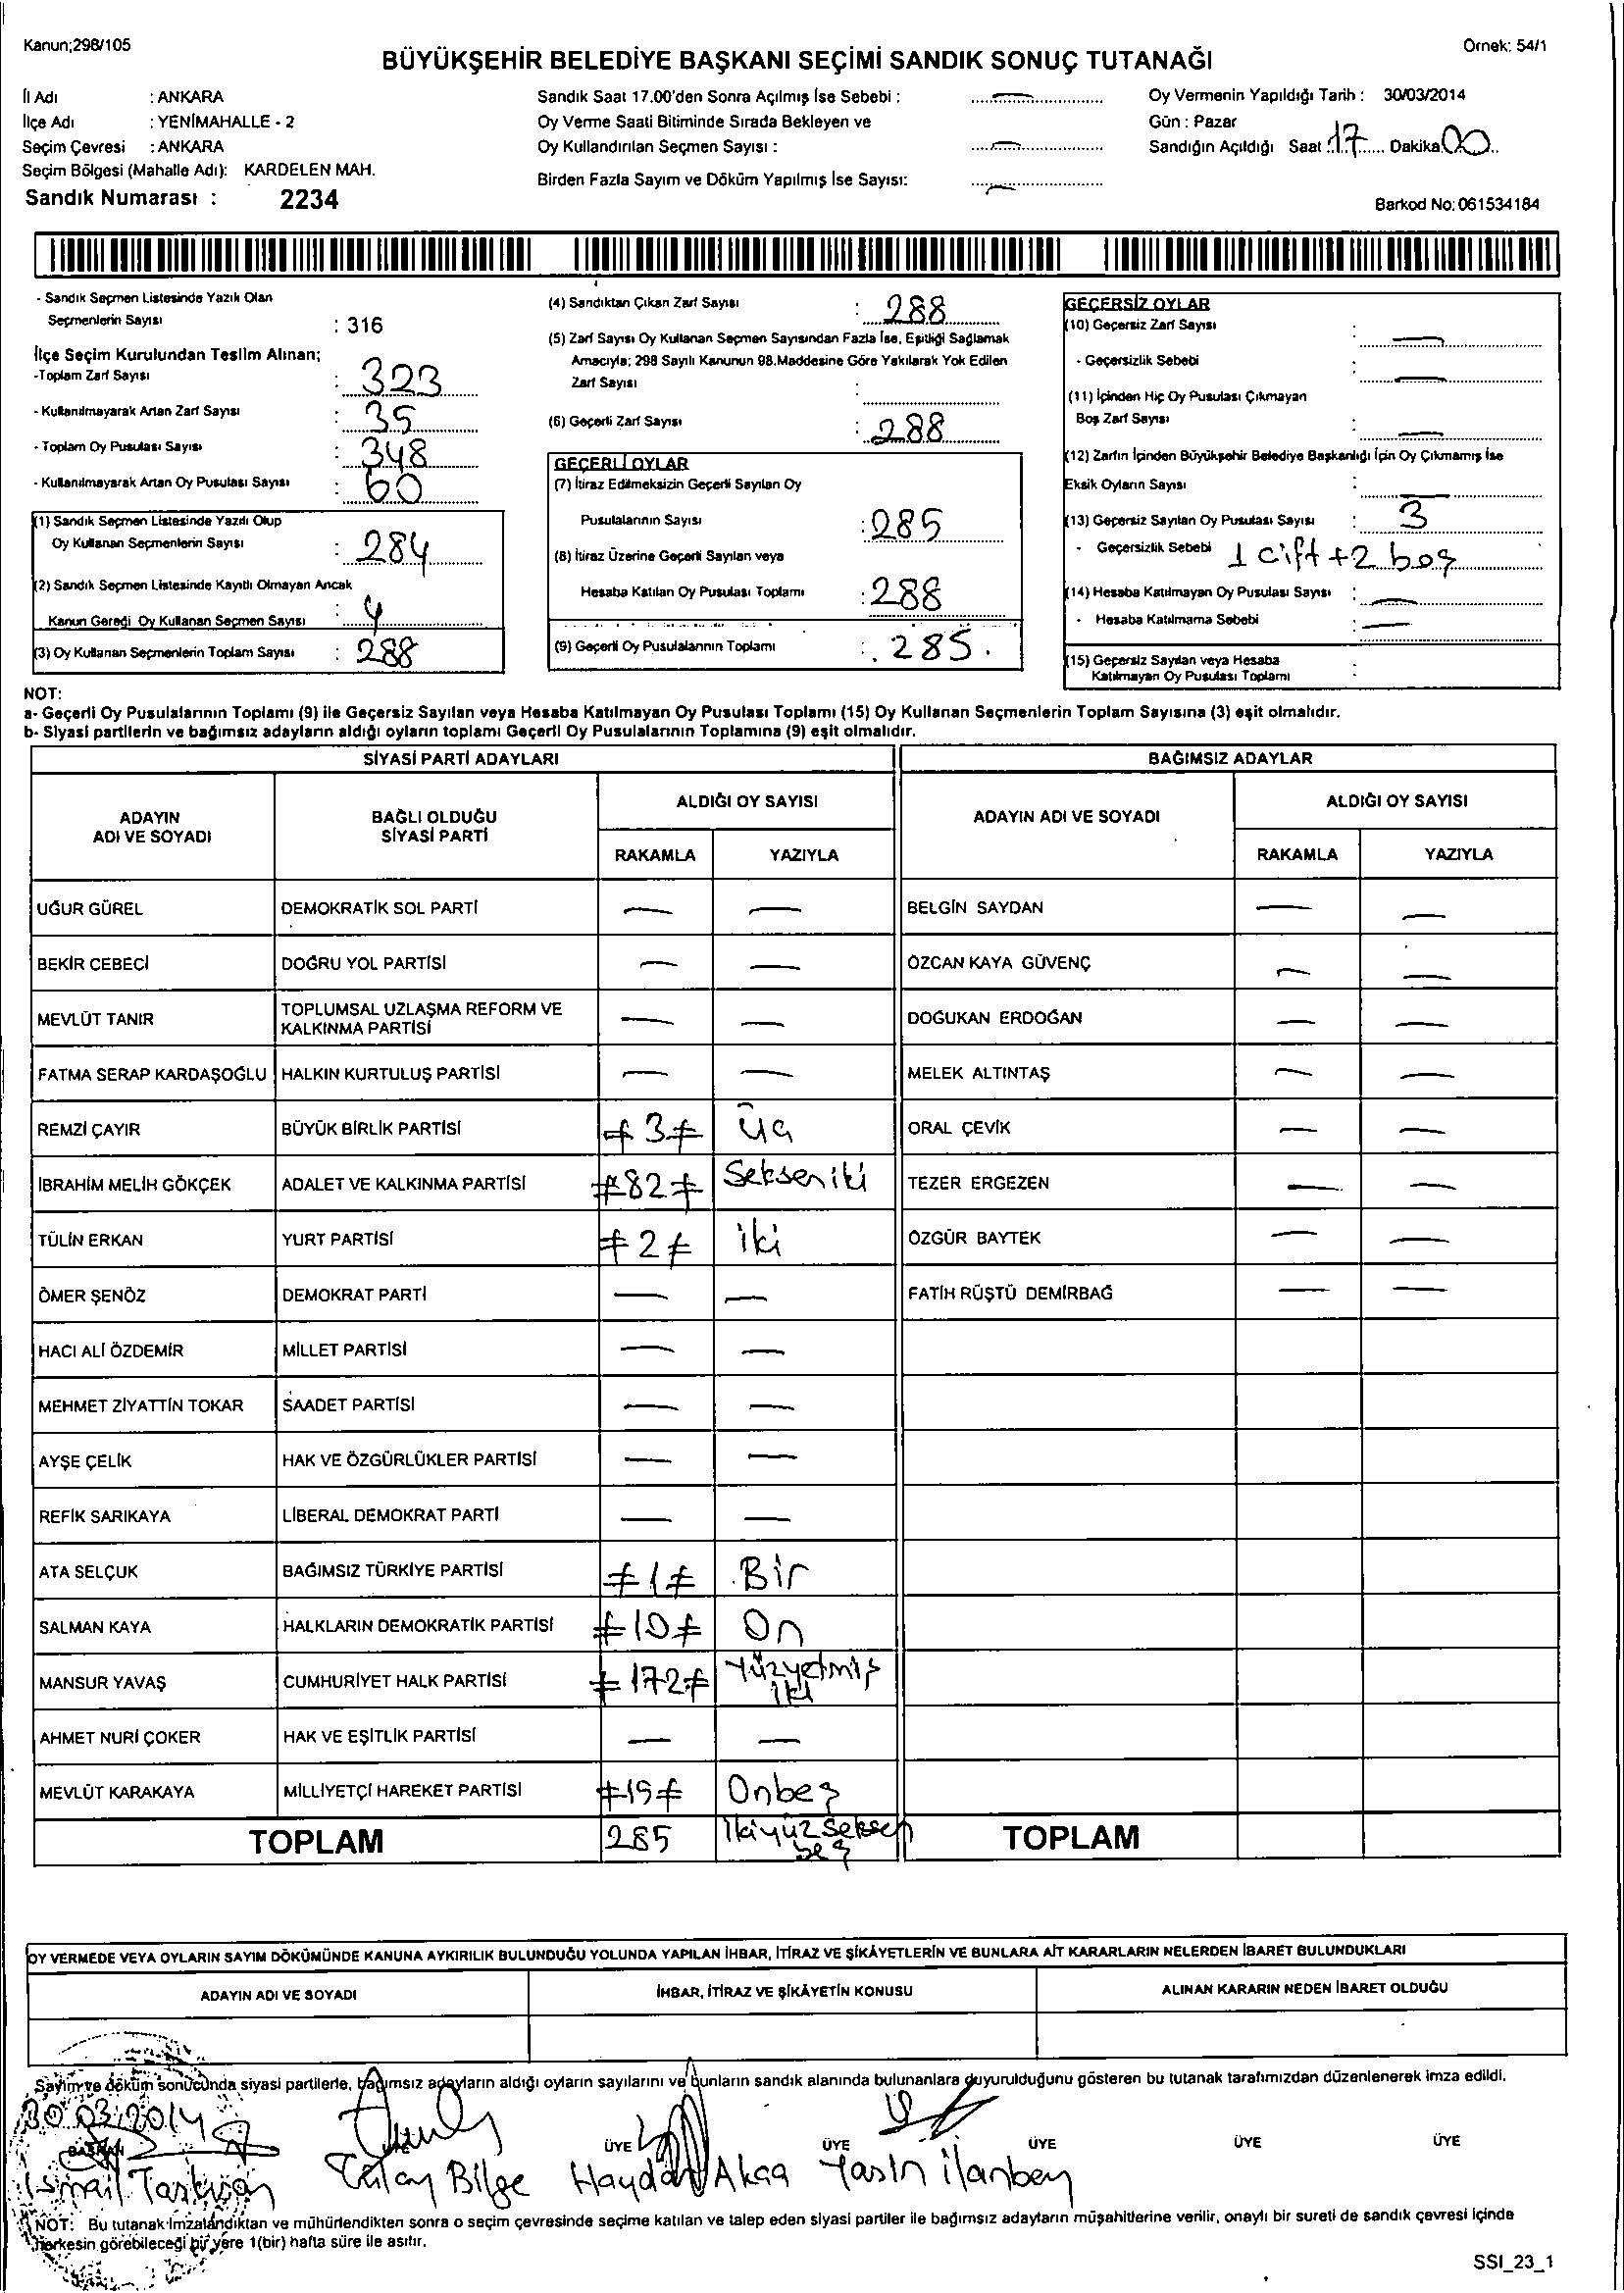 Kanun;298/105
Örnek: 54/1
BÜYÜKŞEHİR BELEDİYE BAŞKANI SEÇİMİ SANDIK SONUÇ TUTANAĞI
İl Adı : ANKARA
İlçe Adı : YENİMAHALLE - 2
Seçim Çevresi : ANKARA
Seçim Bölgesi (Mahalle Adı): KARDELEN MAH.
Sandık Numarası : 2234
Sandık Saat 17.00'den Sonra Açılmış İse Sebebi : —
Oy Verme Saati Bitiminde Sırada Bekleyen ve
Oy Kullandırılan Seçmen Sayısı : —
Birden Fazla Sayım ve Döküm Yapılmış İse Sayısı: —
Oy Vermenin Yapıldığı Tarih : 30/03/2014
Gün : Pazar
Sandığın Açıldığı Saat 17 Dakika 00
Barkod No: 061534184
- Sandık Seçmen Listesinde Yazılı Olan
Seçmenlerin Sayısı : 316
İlçe Seçim Kurulundan Teslim Alınan;
-Toplam Zarf Sayısı : 323
- Kullanılmayarak Artan Zarf Sayısı : 35
- Toplam Oy Pusulası Sayısı : 348
- Kullanılmayarak Artan Oy Pusulası Sayısı : 60
(1) Sandık Seçmen Listesinde Yazılı Olup
Oy Kullanan Seçmenlerin Sayısı : 284
(2) Sandık Seçmen Listesinde Kayıtlı Olmayan Ancak
Kanun Gereği Oy Kullanan Seçmen Sayısı : 4
(3) Oy Kullanan Seçmenlerin Toplam Sayısı : 288
(4) Sandıktan Çıkan Zarf Sayısı : 288
(5) Zarf Sayısı Oy Kullanan Seçmen Sayısından Fazla İse, Eşitliği Sağlamak
Amacıyla; 298 Sayılı Kanunun 98.Maddesine Göre Yakılarak Yok Edilen
Zarf Sayısı :
(6) Geçerli Zarf Sayısı : 288
GEÇERLİ OYLAR
(7) İtiraz Edilmeksizin Geçerli Sayılan Oy
Pusulalarının Sayısı : 285
(8) İtiraz Üzerine Geçerli Sayılan veya
Hesaba Katılan Oy Pusulası Toplamı : 288
(9) Geçerli Oy Pusulalarının Toplamı : 285.
GEÇERSİZ OYLAR
(10) Geçersiz Zarf Sayısı : —
- Geçersizlik Sebebi : —
(11) İçinden Hiç Oy Pusulası Çıkmayan
Boş Zarf Sayısı : —
(12) Zarfın İçinden Büyükşehir Belediye Başkanlığı İçin Oy Çıkmamış İse
Eksik Oyların Sayısı : —
(13) Geçersiz Sayılan Oy Pusulası Sayısı : 3
- Geçersizlik Sebebi 1 çift + 2 boş
(14) Hesaba Katılmayan Oy Pusulası Sayısı : —
- Hesaba Katılmama Sebebi : —
(15) Geçersiz Sayılan veya Hesaba
Katılmayan Oy Pusulası Toplamı :
NOT:
a- Geçerli Oy Pusulalarının Toplamı (9) ile Geçersiz Sayılan veya Hesaba Katılmayan Oy Pusulası Toplamı (15) Oy Kullanan Seçmenlerin Toplam Sayısına (3) eşit olmalıdır.
b- Siyasi partilerin ve bağımsız adayların aldığı oyların toplamı Geçerli Oy Pusulalarının Toplamına (9) eşit olmalıdır.
SİYASİ PARTİ ADAYLARI
BAĞIMSIZ ADAYLAR
ADAYIN ADI VE SOYADI
BAĞLI OLDUĞU SİYASİ PARTİ
ALDIĞI OY SAYISI
RAKAMLA YAZIYLA
ADAYIN ADI VE SOYADI
ALDIĞI OY SAYISI
RAKAMLA YAZIYLA
UĞUR GÜREL DEMOKRATİK SOL PARTİ — — BELGİN SAYDAN — —
BEKİR CEBECİ DOĞRU YOL PARTİSİ — — ÖZCAN KAYA GÜVENÇ — —
MEVLÜT TANIR TOPLUMSAL UZLAŞMA REFORM VE KALKINMA PARTİSİ — — DOĞUKAN ERDOĞAN — —
FATMA SERAP KARDAŞOĞLU HALKIN KURTULUŞ PARTİSİ — — MELEK ALTINTAŞ — —
REMZİ ÇAYIR BÜYÜK BİRLİK PARTİSİ ≠ 3 ≠ Üç ORAL ÇEVİK — —
İBRAHİM MELİH GÖKÇEK ADALET VE KALKINMA PARTİSİ ≠ 82 ≠ Sekseniki TEZER ERGEZEN — —
TÜLİN ERKAN YURT PARTİSİ ≠ 2 ≠ iki ÖZGÜR BAYTEK — —
ÖMER ŞENÖZ DEMOKRAT PARTİ — — FATİH RÜŞTÜ DEMİRBAĞ — —
HACI ALİ ÖZDEMİR MİLLET PARTİSİ — —
MEHMET ZİYATTİN TOKAR SAADET PARTİSİ — —
AYŞE ÇELİK HAK VE ÖZGÜRLÜKLER PARTİSİ — —
REFİK SARIKAYA LİBERAL DEMOKRAT PARTİ — —
ATA SELÇUK BAĞIMSIZ TÜRKİYE PARTİSİ ≠ 1 ≠ Bir
SALMAN KAYA HALKLARIN DEMOKRATİK PARTİSİ ≠ 10 ≠ On
MANSUR YAVAŞ CUMHURİYET HALK PARTİSİ ≠ 172 ≠ Yüzyetmiş iki
AHMET NURİ ÇOKER HAK VE EŞİTLİK PARTİSİ — —
MEVLÜT KARAKAYA MİLLİYETÇİ HAREKET PARTİSİ ≠ 15 ≠ Onbeş
TOPLAM 285 İkiyüz seksen beş TOPLAM
OY VERMEDE VEYA OYLARIN SAYIM DÖKÜMÜNDE KANUNA AYKIRILIK BULUNDUĞU YOLUNDA YAPILAN İHBAR, İTİRAZ VE ŞİKÂYETLERİN VE BUNLARA AİT KARARLARIN NELERDEN İBARET BULUNDUKLARI
ADAYIN ADI VE SOYADI İHBAR, İTİRAZ VE ŞİKÂYETİN KONUSU ALINAN KARARIN NEDEN İBARET OLDUĞU
Sayım ve döküm sonucunda siyasi partilerle, bağımsız adayların aldığı oyların sayılarını ve bunların sandık alanında bulunanlara duyurulduğunu gösteren bu tutanak tarafımızdan düzenlenerek imza edildi.
30.03.2014
BAŞKAN ÜYE ÜYE ÜYE ÜYE ÜYE
İsmail Taşkıran Tülay Bilge Haydar Akça Yasin ilanbey
NOT: Bu tutanak İmzalandıktan ve mühürlendikten sonra o seçim çevresinde seçime katılan ve talep eden siyasi partiler ile bağımsız adayların müşahitlerine verilir, onaylı bir sureti de sandık çevresi içinde
herkesin görebileceği bir yere 1(bir) hafta süre ile asılır.
SSI_23_1